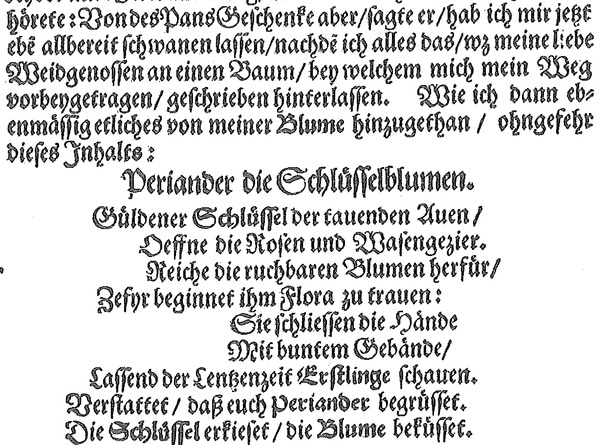 hörete: Von des Pans Geschenke aber/ sagte er/ hab ich mir jetzt
ebē allbereit schwanen lassen/ nachdē ich alles das/ wz meine liebe
Weidgenossen an einen Baum/ bey welchem mich mein Weg
vorbeygetragen/ geschrieben hinterlassen. Wie ich dann eb-
enmässig etliches von meiner Blume hinzugethan / ohngefehr
dieses Inhalts:
Periander die Schlüsselblumen.
Güldener Schlüssel der tauenden Auen/
Oeffne die Rosen und Wasengezier.
Reiche die ruchbaren Blumen herfür/
Zefyr beginnet ihm Flora zu trauen:
Sie schliessen die Hände
Mit buntem Gebände/
Lassend der Lentzenzeit Erstlinge schauen.
Verstattet / daß euch Periander begrüsset.
Die Schlüssel erkieset / die Blume beküsset.